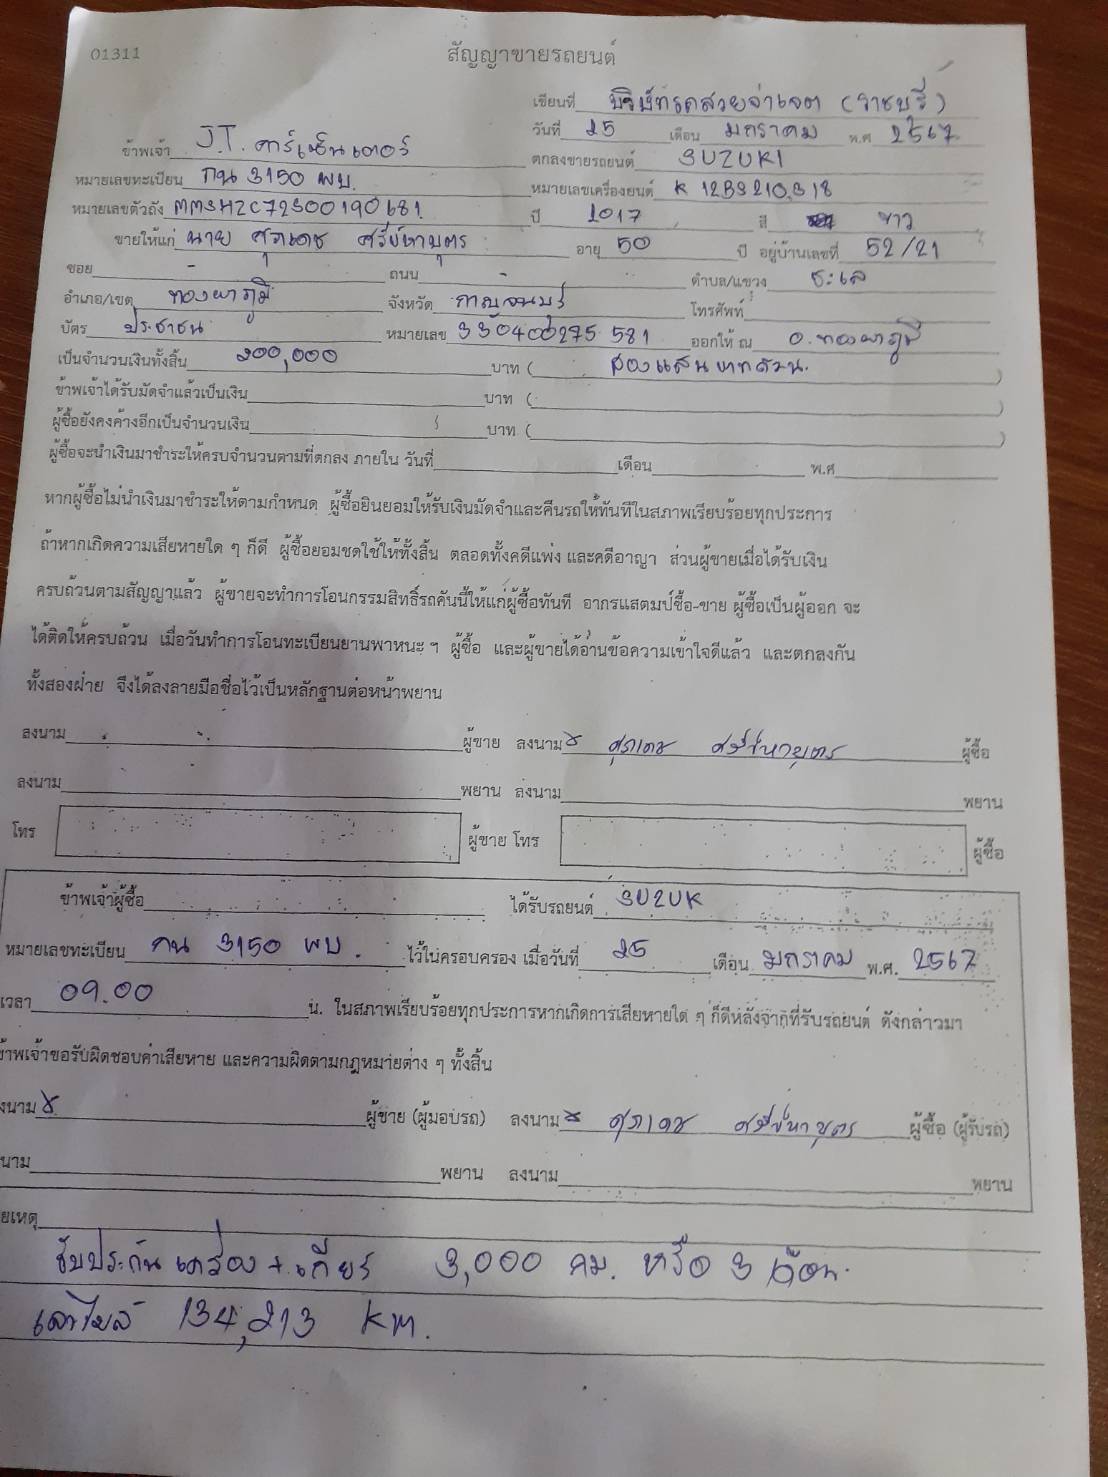 01311
สัญญาขายรถยนต์
เขียนที่ บริษัทรถสวยจ่าเจต (ราชบุรี)
วันที่ 25 เดือน มกราคม พ.ศ 2567
ข้าพเจ้า J.T. คาร์เซ็นเตอร์ ตกลงขายรถยนต์ SUZUKI
หมายเลขทะเบียน กน 3150 พบ. หมายเลขเครื่องยนต์ K 12B3210318
หมายเลขตัวถัง MMSHZC72S00190681 ปี 2017 สี ขาว
ขายให้แก่ นาย ศุภเดช ศรีษ์หาบุตร อายุ 50 ปี อยู่บ้านเลขที่ 52/21
ซอย - ถนน - ตำบล/แขวง ชะแล
อำเภอ/เขต ทองผาภูมิ จังหวัด กาญจนบุรี โทรศัพท์
บัตร ประชาชน หมายเลข 330400275 581 ออกให้ ณ อ.ทองผาภูมิ
เป็นจำนวนเงินทั้งสิ้น 200,000 บาท ( สองแสนบาทถ้วน. )
ข้าพเจ้าได้รับมัดจำแล้วเป็นเงิน บาท ( )
ผู้ซื้อยังคงค้างอีกเป็นจำนวนเงิน บาท ( )
ผู้ซื้อจะนำเงินมาชำระให้ครบจำนวนตามที่ตกลง ภายใน วันที่ เดือน พ.ศ
หากผู้ซื้อไม่นำเงินมาชำระให้ตามกำหนด ผู้ซื้อยินยอมให้รับเงินมัดจำและคืนรถให้ทันทีในสภาพเรียบร้อยทุกประการ
ถ้าหากเกิดความเสียหายใด ๆ ก็ดี ผู้ซื้อยอมชดใช้ให้ทั้งสิ้น ตลอดทั้งคดีแพ่ง และคดีอาญา ส่วนผู้ขายเมื่อได้รับเงิน
ครบถ้วนตามสัญญาแล้ว ผู้ขายจะทำการโอนกรรมสิทธิ์รถคันนี้ให้แก่ผู้ซื้อทันที อากรแสตมป์ซื้อ-ขาย ผู้ซื้อเป็นผู้ออก จะ
ได้ติดให้ครบถ้วน เมื่อวันทำการโอนทะเบียนยานพาหนะ ฯ ผู้ซื้อ และผู้ขายได้อ่านข้อความเข้าใจดีแล้ว และตกลงกัน
ทั้งสองฝ่าย จึงได้ลงลายมือชื่อไว้เป็นหลักฐานต่อหน้าพยาน
ลงนาม ผู้ขาย ลงนาม x ศุภเดช ศรีษ์หาบุตร ผู้ซื้อ
ลงนาม พยาน ลงนาม พยาน
โทร ผู้ขาย โทร ผู้ซื้อ
ข้าพเจ้าผู้ซื้อ ได้รับรถยนต์ SUZUK
หมายเลขทะเบียน กน 3150 พบ. ไว้ในครอบครอง เมื่อวันที่ 25 เดือน มกราคม พ.ศ. 2567
เวลา 09.00 น. ในสภาพเรียบร้อยทุกประการหากเกิดการเสียหายใด ๆ ก็ดีหลังจากที่รับรถยนต์ ดังกล่าวมา
ข้าพเจ้าขอรับผิดชอบค่าเสียหาย และความผิดตามกฎหมายต่าง ๆ ทั้งสิ้น
งนาม x ผู้ขาย (ผู้มอบรถ) ลงนาม x ศุภเดช ศรีษ์หาบุตร ผู้ซื้อ (ผู้รับรถ)
นาม พยาน ลงนาม พยาน
ยเหตุ
รับประกัน เครื่อง + เกียร์ 3,000 กม. หรือ 3 เดือน.
เลขไมล์ 134,213 KM.